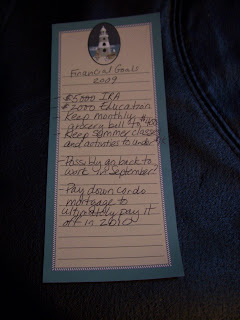 Financial Goals
2009
- $5000 IRA
- $2000 Education
- Keep monthly
grocery bill to $400
- Keep summer classes
and activities to under
- Possibly go back to
work in September?
- Pay down condo
mortgage to
ultimately pay it
off in 2010